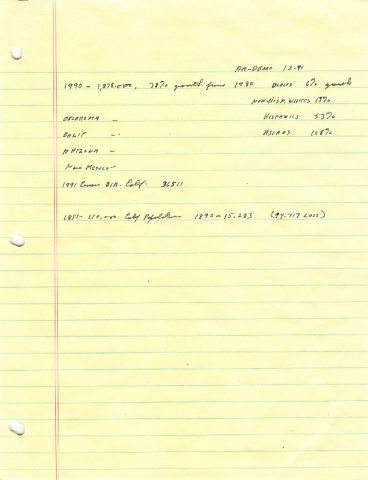 AM-DEMO 12-91
1990 - 1,878,000, 38% growth from 1980 BLACKS 6% growth
NON-HISP. WHITES 13%
OKLAHOMA - HISPANICS 53%
CALIF -. ASIANS 108%
ARIZONA -
New Mexico -
1991 Census BIA. Calif. 36511
1851- 110,000 Calf Population 1890 - 15,283 (94,717 Loss)